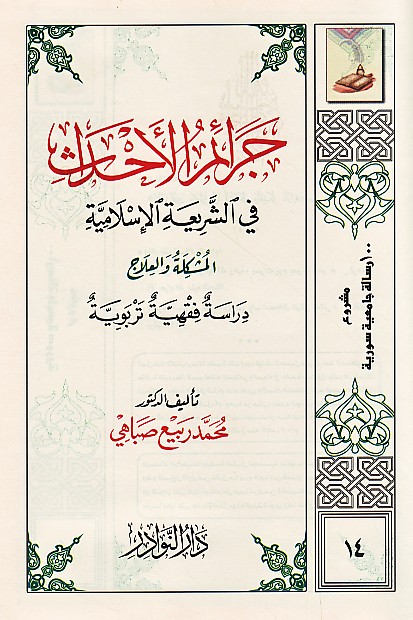 جَرَائِمُ الأَحْدَاثِ
فِي الشَّرِيعَةِ الإِسْلَامِيَّةِ
المُشْكِلَةُ وَالعِلَاجُ
دِرَاسَةٌ فِقْهِيَّةٌ تَرْبَوِيَّةٌ
تأليف الدكتور
مُحَمَّد رَبِيع صَبَاهِي
دار النوادر
مشروع
١٠٠ رسالة جامعية سورية
١٤